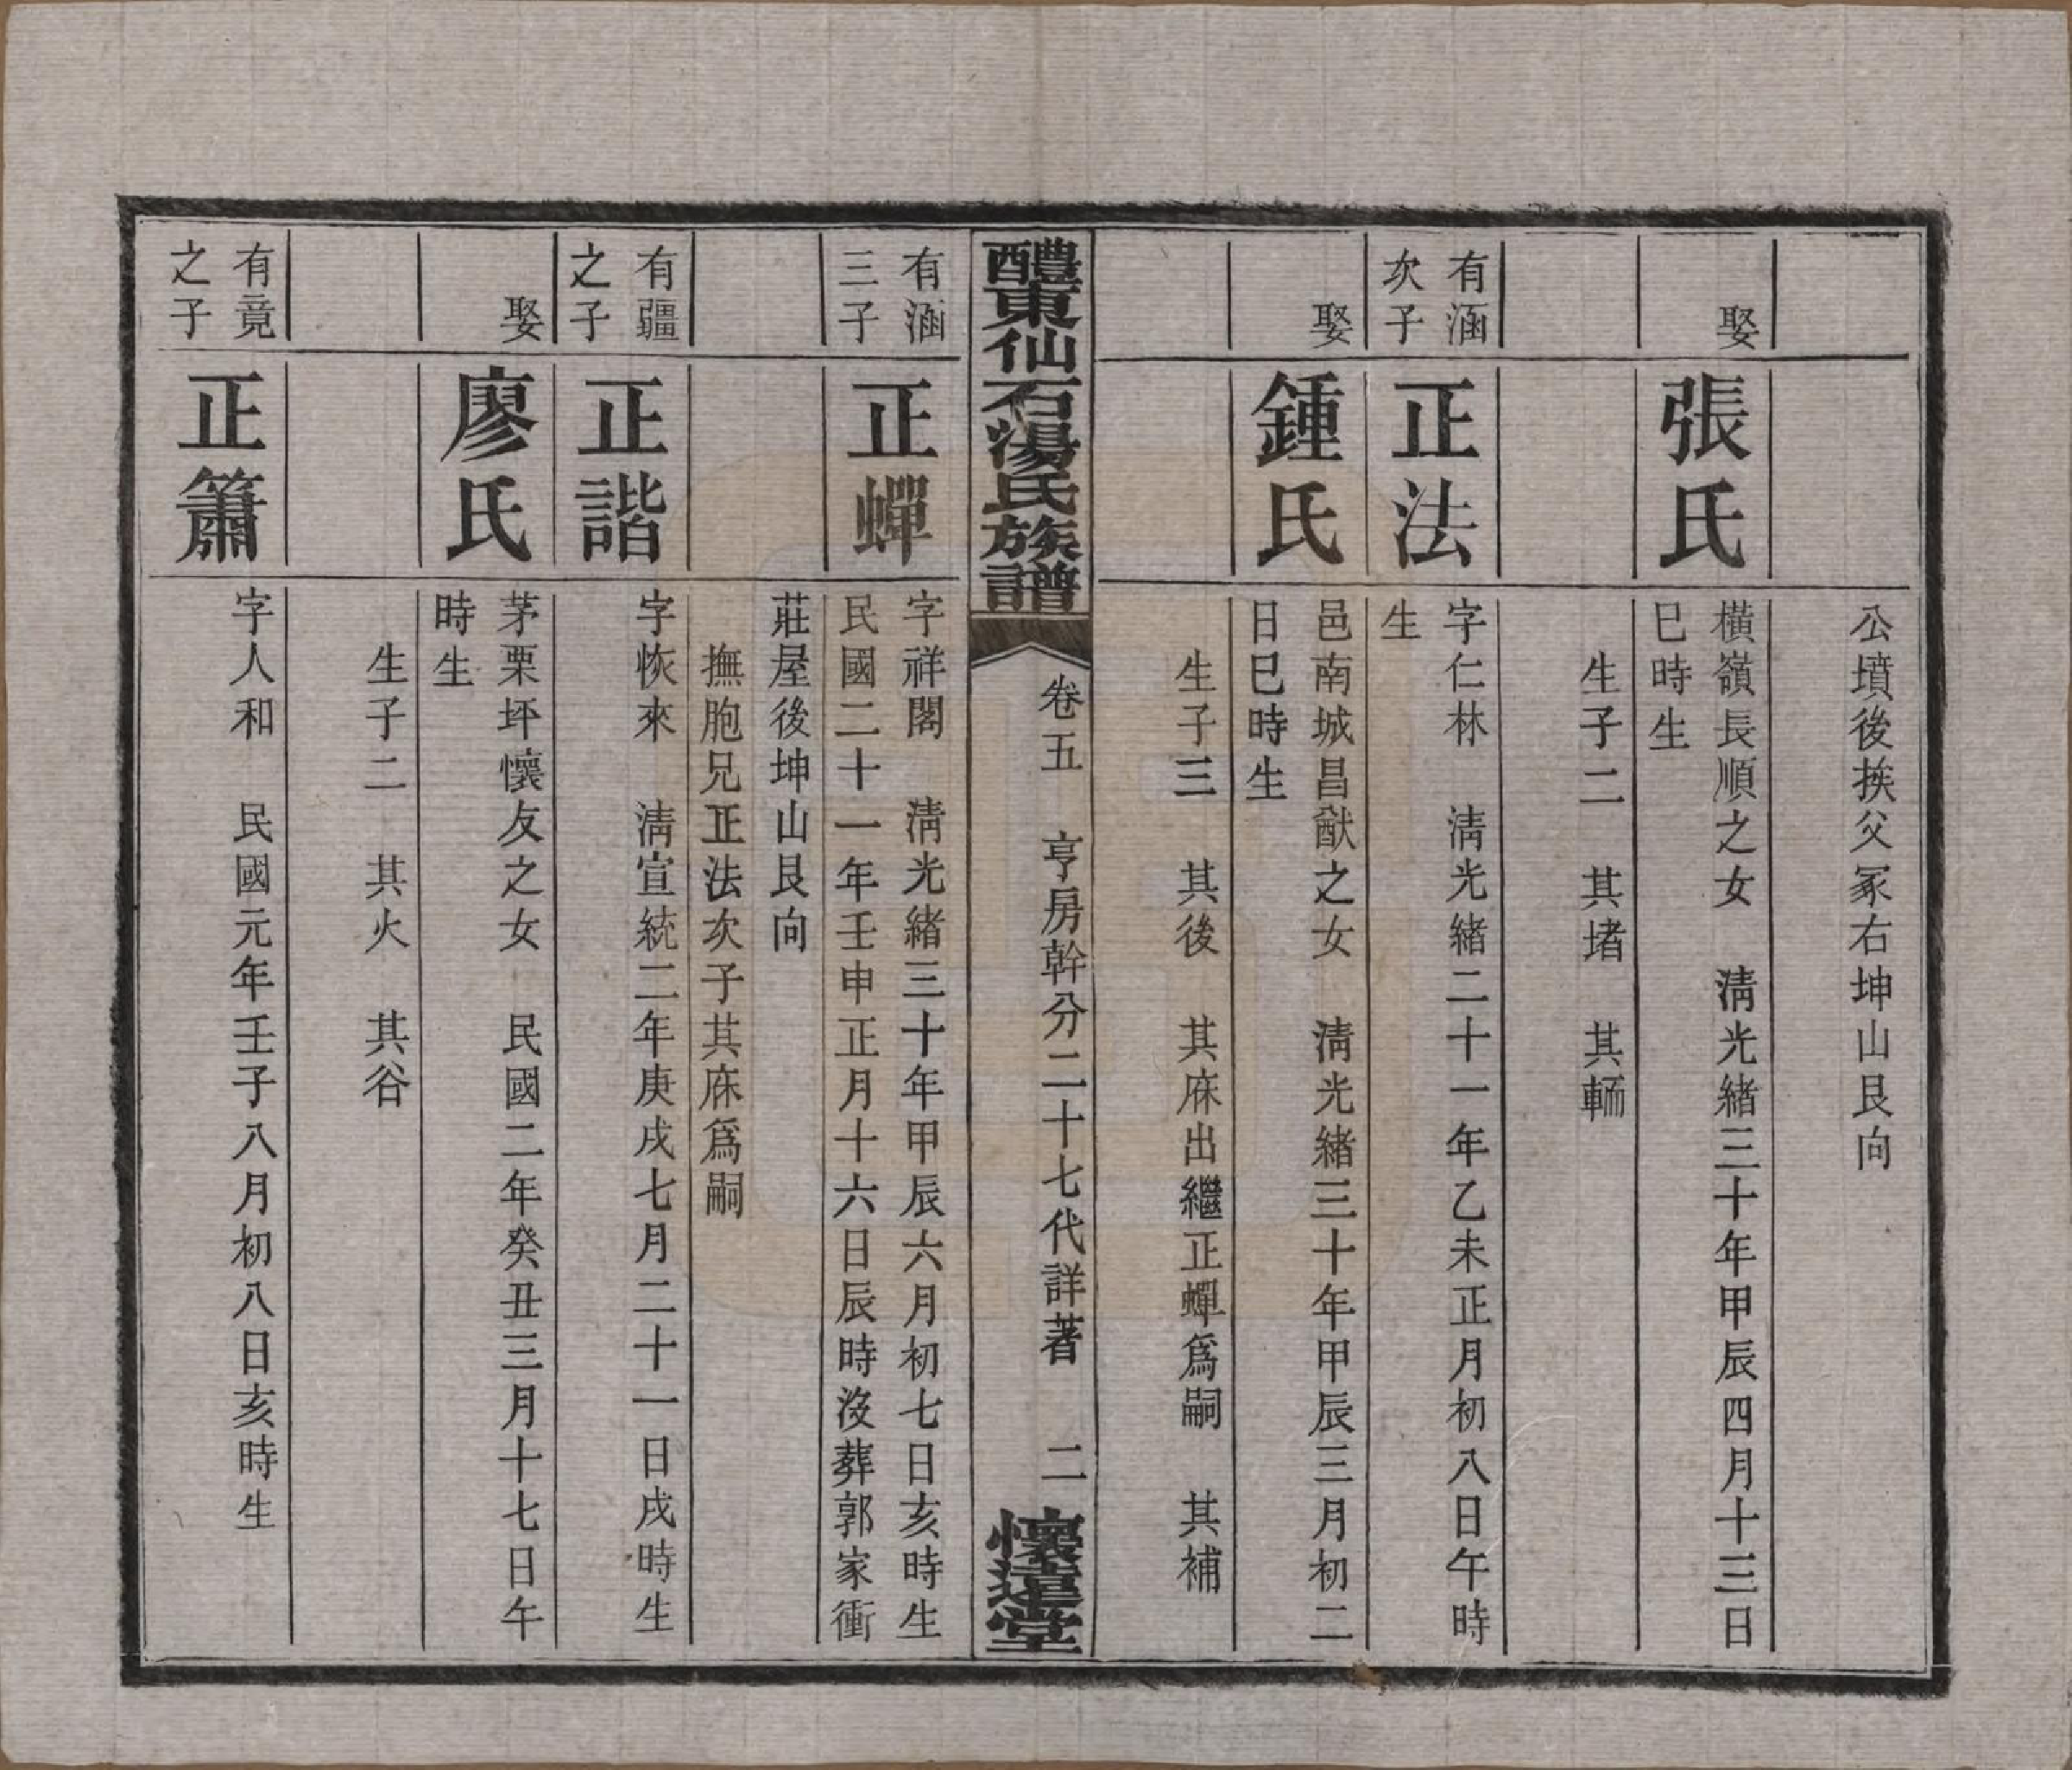 公墳後挨父冢右坤山艮向
娶
張氏
橫嶺長順之女　淸光緖三十年甲辰四月十三日
巳時生
生子二　其堵　其輀
有涵
次子
正法
字仁林　淸光緖二十一年乙未正月初八日午時
生
娶
鍾氏
邑南城昌猷之女　淸光緖三十年甲辰三月初二
日巳時生
生子三　其後　其庥出繼正蟬爲嗣　其補
醴東仙石湯氏族譜
卷五　亨房幹分二十七代詳著　二
懷遠堂
有涵
三子
正蟬
字祥閣　淸光緖三十年甲辰六月初七日亥時生
民國二十一年壬申正月十六日辰時沒葬郭家衝
莊屋後坤山艮向
撫胞兄正法次子其庥爲嗣
有疆
之子
正諧
字恢來　淸宣統二年庚戌七月二十一日戌時生
娶
廖氏
茅栗坪懷友之女　民國二年癸丑三月十七日午
時生
生子二　其火　其谷
有竟
之子
正簫
字人和　民國元年壬子八月初八日亥時生